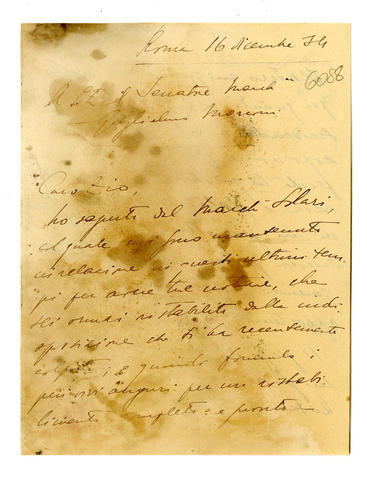 Roma 16 dicembre 34
6088
A S.E. il Senatore March
Guglielmo Marconi
Caro Zio,
ho saputo dal March Solari,
col quale mi sono mantenuto
in relazione in questi ultimi tem
pi per avere tue notizie, che
sei ormai ristabilito dalla indi
sposizione che ti ha recentemente
colpito, e quando formulo i
più vivi auguri per un ristabi
limento completo e pronto